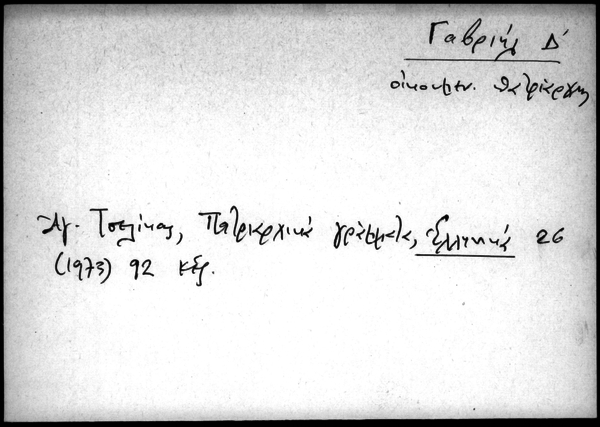 Γαβριήλ Δ΄
οἰκουμεν. πατριάρχης
Ἀγ. Τσελίκας, Πατριαρχικά γράμματα, Ἑλληνικά 26
(1973) 92 κἑξ.